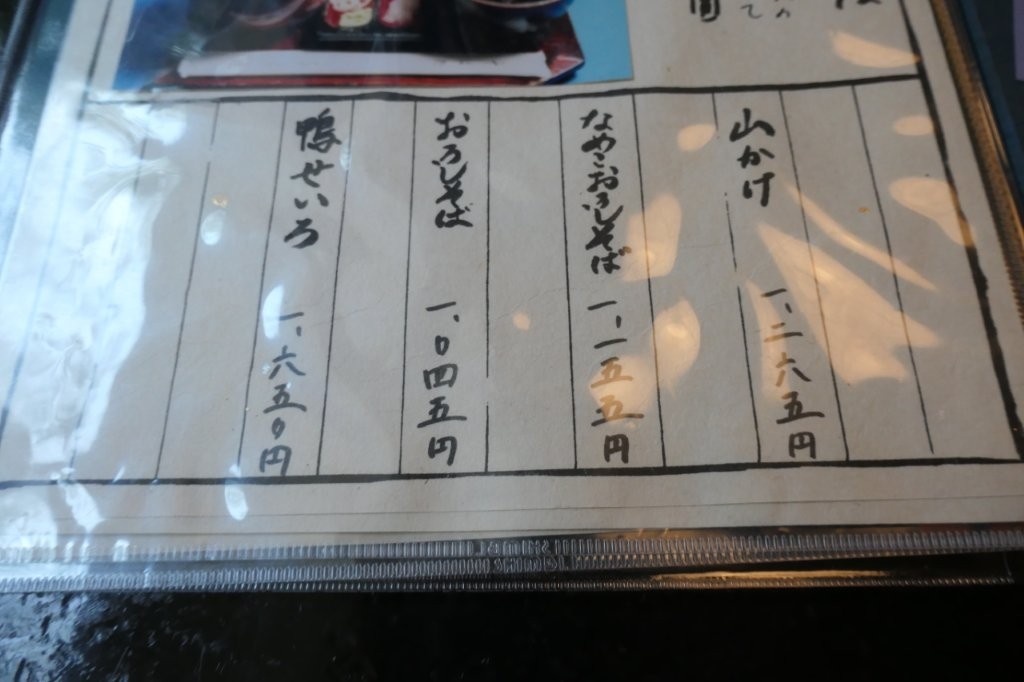 山かけ 一、二六五円
なめこおろしそば 一、一五五円
おろしそば 一、〇四五円
鴨せいろ 一、六五〇円